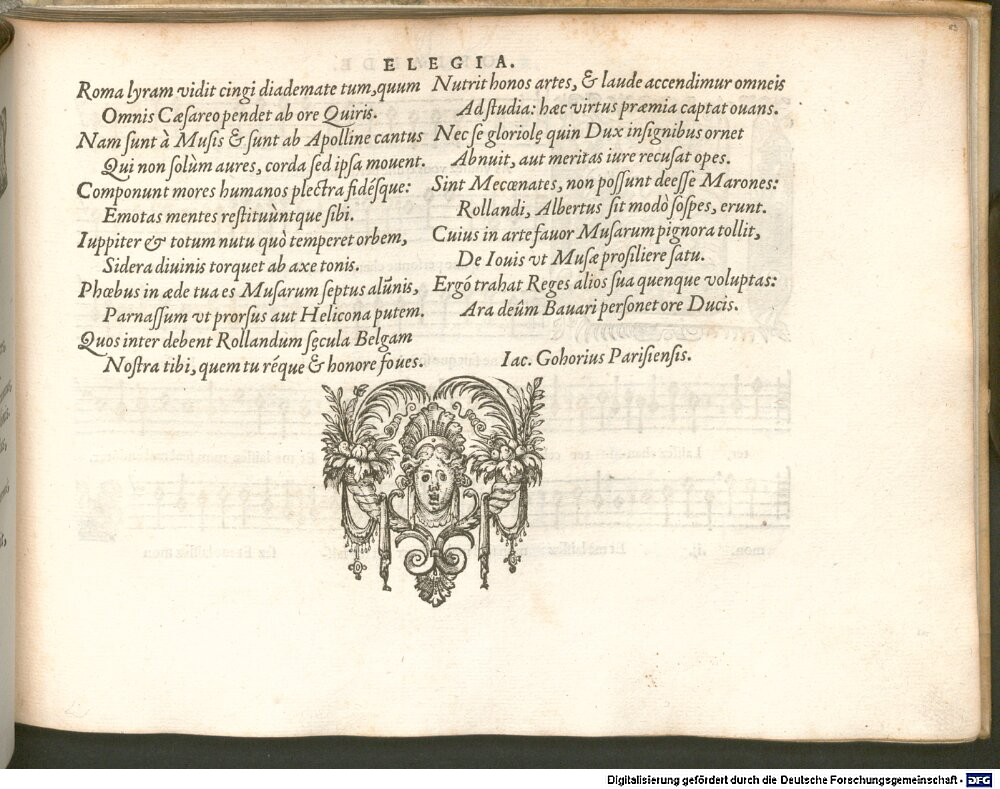 ELEGIA.
Roma lyram vidit cingi diademate tum, quum
Omnis Cæsareo pendet ab ore Quiris.
Nam sunt à Musis & sunt ab Apolline cantus
Qui non solùm aures, corda sed ipsa mouent.
Componunt mores humanos plectra fidésque:
Emotas mentes restituùntque sibi.
Iuppiter & totum nutu quò temperet orbem,
Sidera diuinis torquet ab axe tonis.
Phœbus in æde tua es Musarum septus alũnis,
Parnassum vt prorsus aut Helicona putem.
Quos inter debent Rollandum sęcula Belgam
Nostra tibi, quem tu réque & honore foues.
Nutrit honos artes, & laude accendimur omneis
Ad studia: hæc virtus præmia captat ouans.
Nec se gloriolę quin Dux insignibus ornet
Abnuit, aut meritas iure recusat opes.
Sint Mecœnates, non possunt deesse Marones:
Rollandi, Albertus sit modò sospes, erunt.
Cuius in arte fauor Musarum pignora tollit,
De Iouis vt Musæ prosiliere satu.
Ergó trahat Reges alios sua quenque voluptas:
Ara deûm Bauari personet ore Ducis.
Iac. Gohorius Parisiensis.
Digitalisierung gefördert durch die Deutsche Forschungsgemeinschaft - DFG